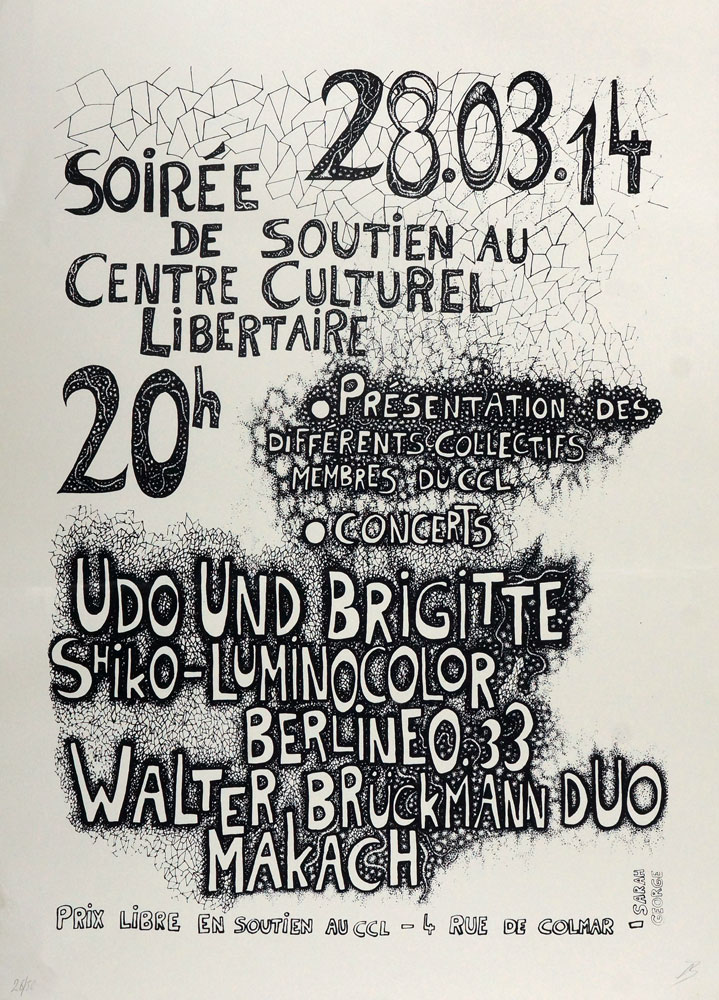 28.03.14
SOIRÉE
DE SOUTIEN AU
CENTRE CULTUREL
LIBERTAIRE
20h
• PRÉSENTATION DES
DIFFÉRENTS COLLECTIFS
MEMBRES DU CCL
• CONCERTS
UDO UND BRIGITTE
SHIKO-LUMINOCOLOR
BERLINE0.33
WALTER BRÜCKMANN DUO
MAKACH
PRIX LIBRE EN SOUTIEN AU CCL - 4 RUE DE COLMAR -
SARAH
GEORGE